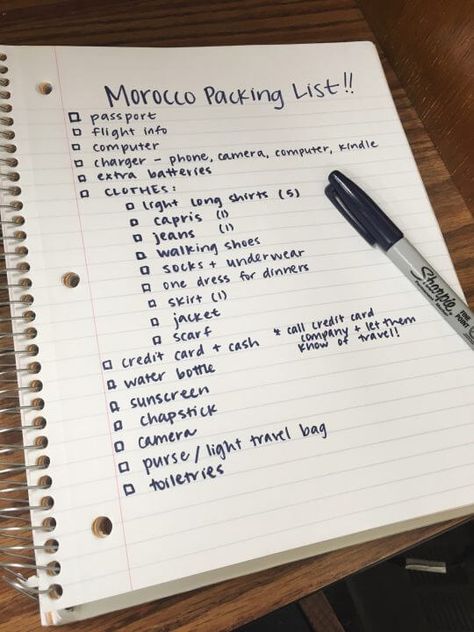 Morocco Packing List!!
passport
flight info
computer
charger - phone, camera, computer, kindle
extra batteries
CLOTHES:
light long shirts (5)
capris (1)
jeans (1)
walking shoes
socks + underwear
one dress for dinners
skirt (1)
jacket
scarf
credit card + cash * call credit card
company + let them
know of travel!
water bottle
sunscreen
chapstick
camera
purse / light travel bag
toiletries
Sharpie